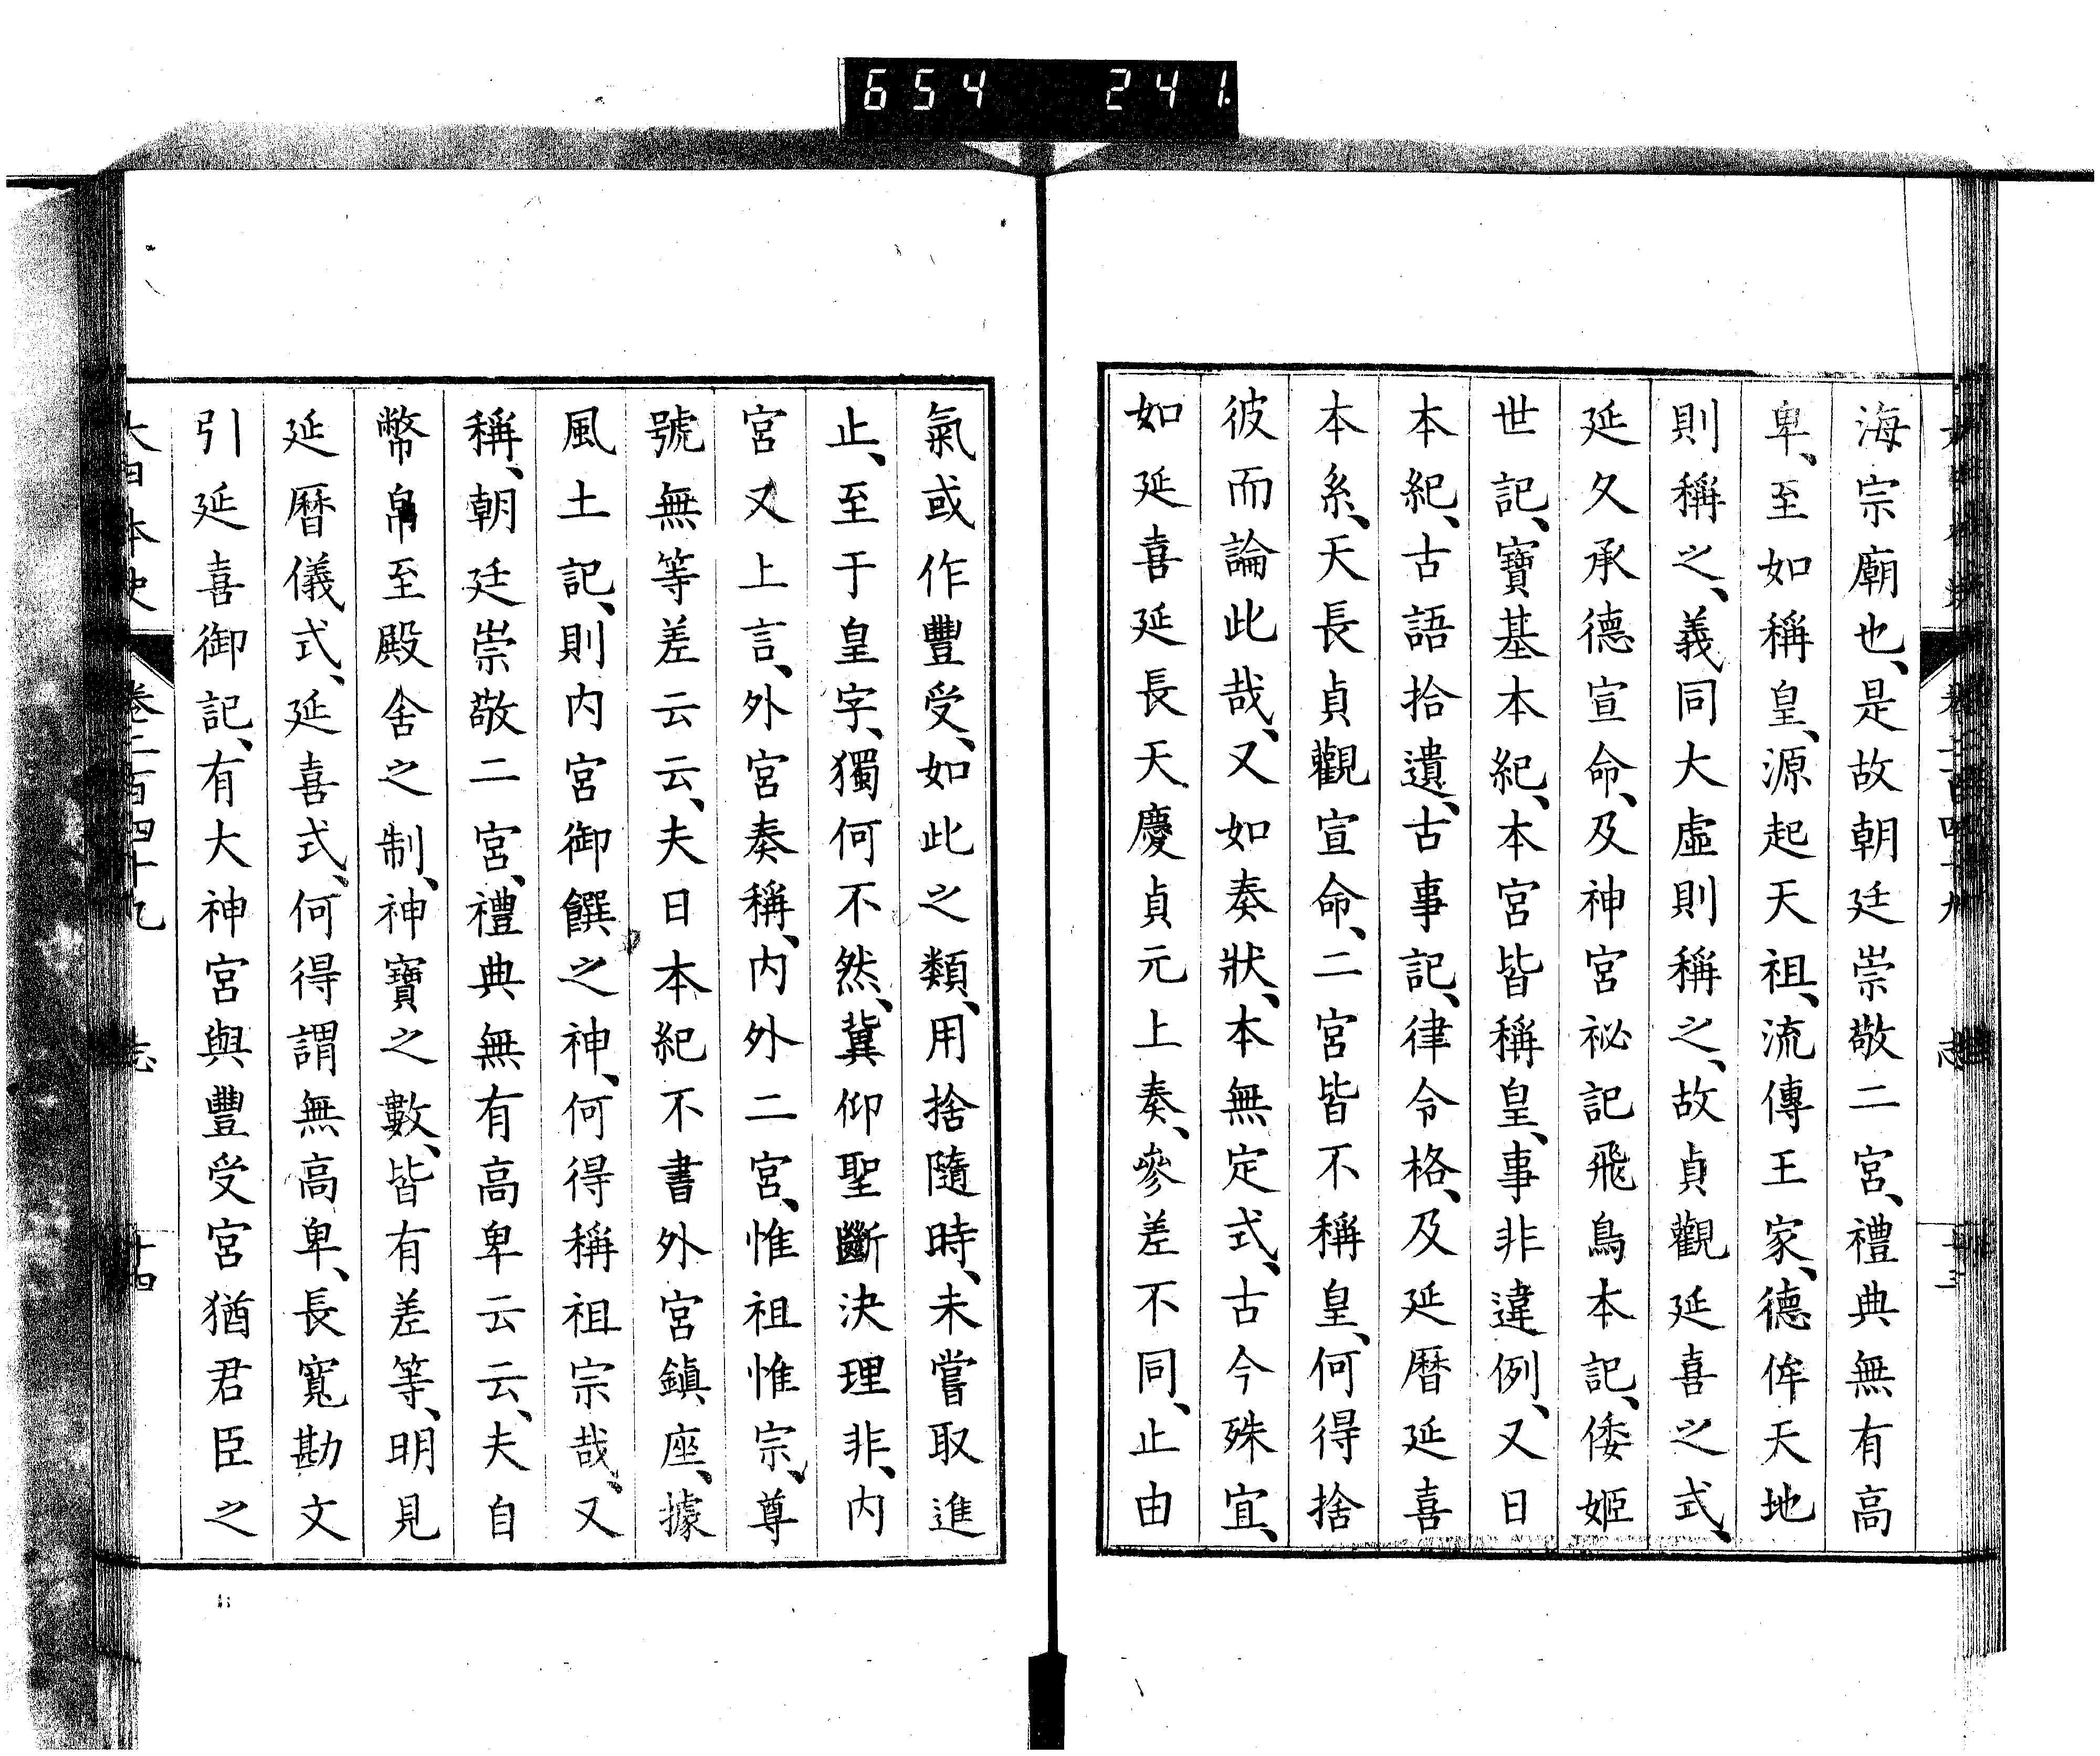 654 241.
海宗廟也、是故朝廷崇敬二宮、禮典無有高
卑、至如稱皇、源起天祖、流傳王家、德侔天地
則稱之、義同大虛則稱之、故貞觀延喜之式、
延久承德宣命、及神宮祕記飛鳥本記、倭姬
世記、寶基本紀、本宮皆稱皇、事非違例、又日
本紀、古語拾遺、古事記、律令格、及延曆延喜
本系、天長貞觀宣命、二宮皆不稱皇、何得捨
彼而論此哉、又如奏狀、本無定式、古今殊宜、
如延喜延長天慶貞元上奏、參差不同、止由
氣或作豐受、如此之類、用捨隨時、未嘗取進
止、至于皇字、獨何不然、冀仰聖斷決理非、內
宮又上言、外宮奏稱、內外二宮、惟祖惟宗、尊
號無等差云云、夫日本紀不書外宮鎮座、據
風土記、則內宮御饌之神、何得稱祖宗哉、又
稱、朝廷崇敬二宮、禮典無有高卑云云、夫自
幣帛至殿舍之制、神寶之數、皆有差等、明見
延曆儀式、延喜式、何得謂無高卑、長寬勘文
引延喜御記、有大神宮與豐受宮猶君臣之
大日本史 卷二百四十九 志 十四